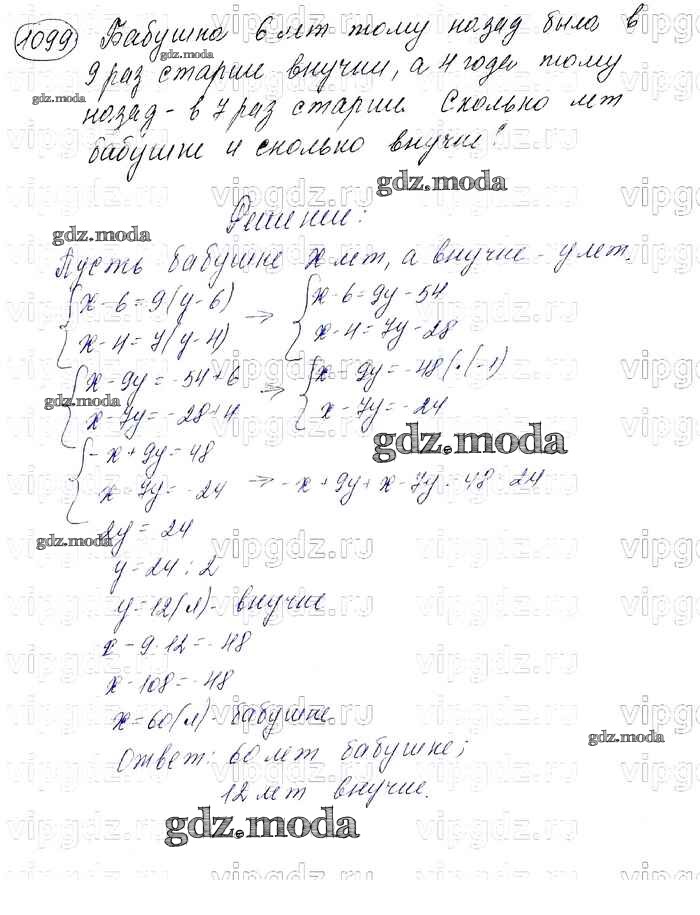 1099 Бабушка 6 лет тому назад была в
9 раз старше внучки, а 4 года тому
назад - в 7 раз старше. Сколько лет
бабушке и сколько внучке?
Решение:
Пусть бабушке x лет, а внучке - y лет.
{ x - 6 = 9(y - 6) => { x - 6 = 9y - 54
x - 4 = 7(y - 4) x - 4 = 7y - 28
{ x - 9y = -54 + 6 => { x - 9y = -48 | · (-1)
x - 7y = -28 + 4 x - 7y = -24
{ -x + 9y = 48
x - 7y = -24 => -x + 9y + x - 7y = 48 - 24
2y = 24
y = 24 : 2
y = 12 (л) - внучке
x - 9 · 12 = -48
x - 108 = -48
x = 60 (л) - бабушке.
Ответ: 60 лет бабушке;
12 лет внучке.
gdz.moda
vipgdz.ru